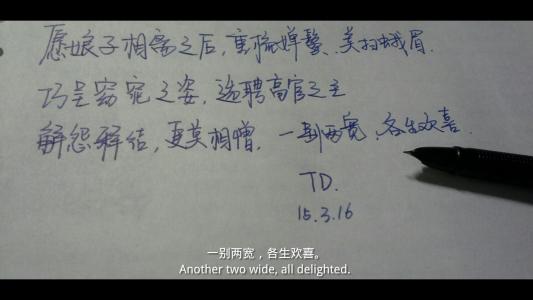 愿娘子相离之后，重梳婵鬓，美扫蛾眉，
巧呈窈窕之姿，选聘高官之主
解怨释结，更莫相憎，一别两宽，各生欢喜.
TD.
15.3.16
一别两宽，各生欢喜。
Another two wide, all delighted.